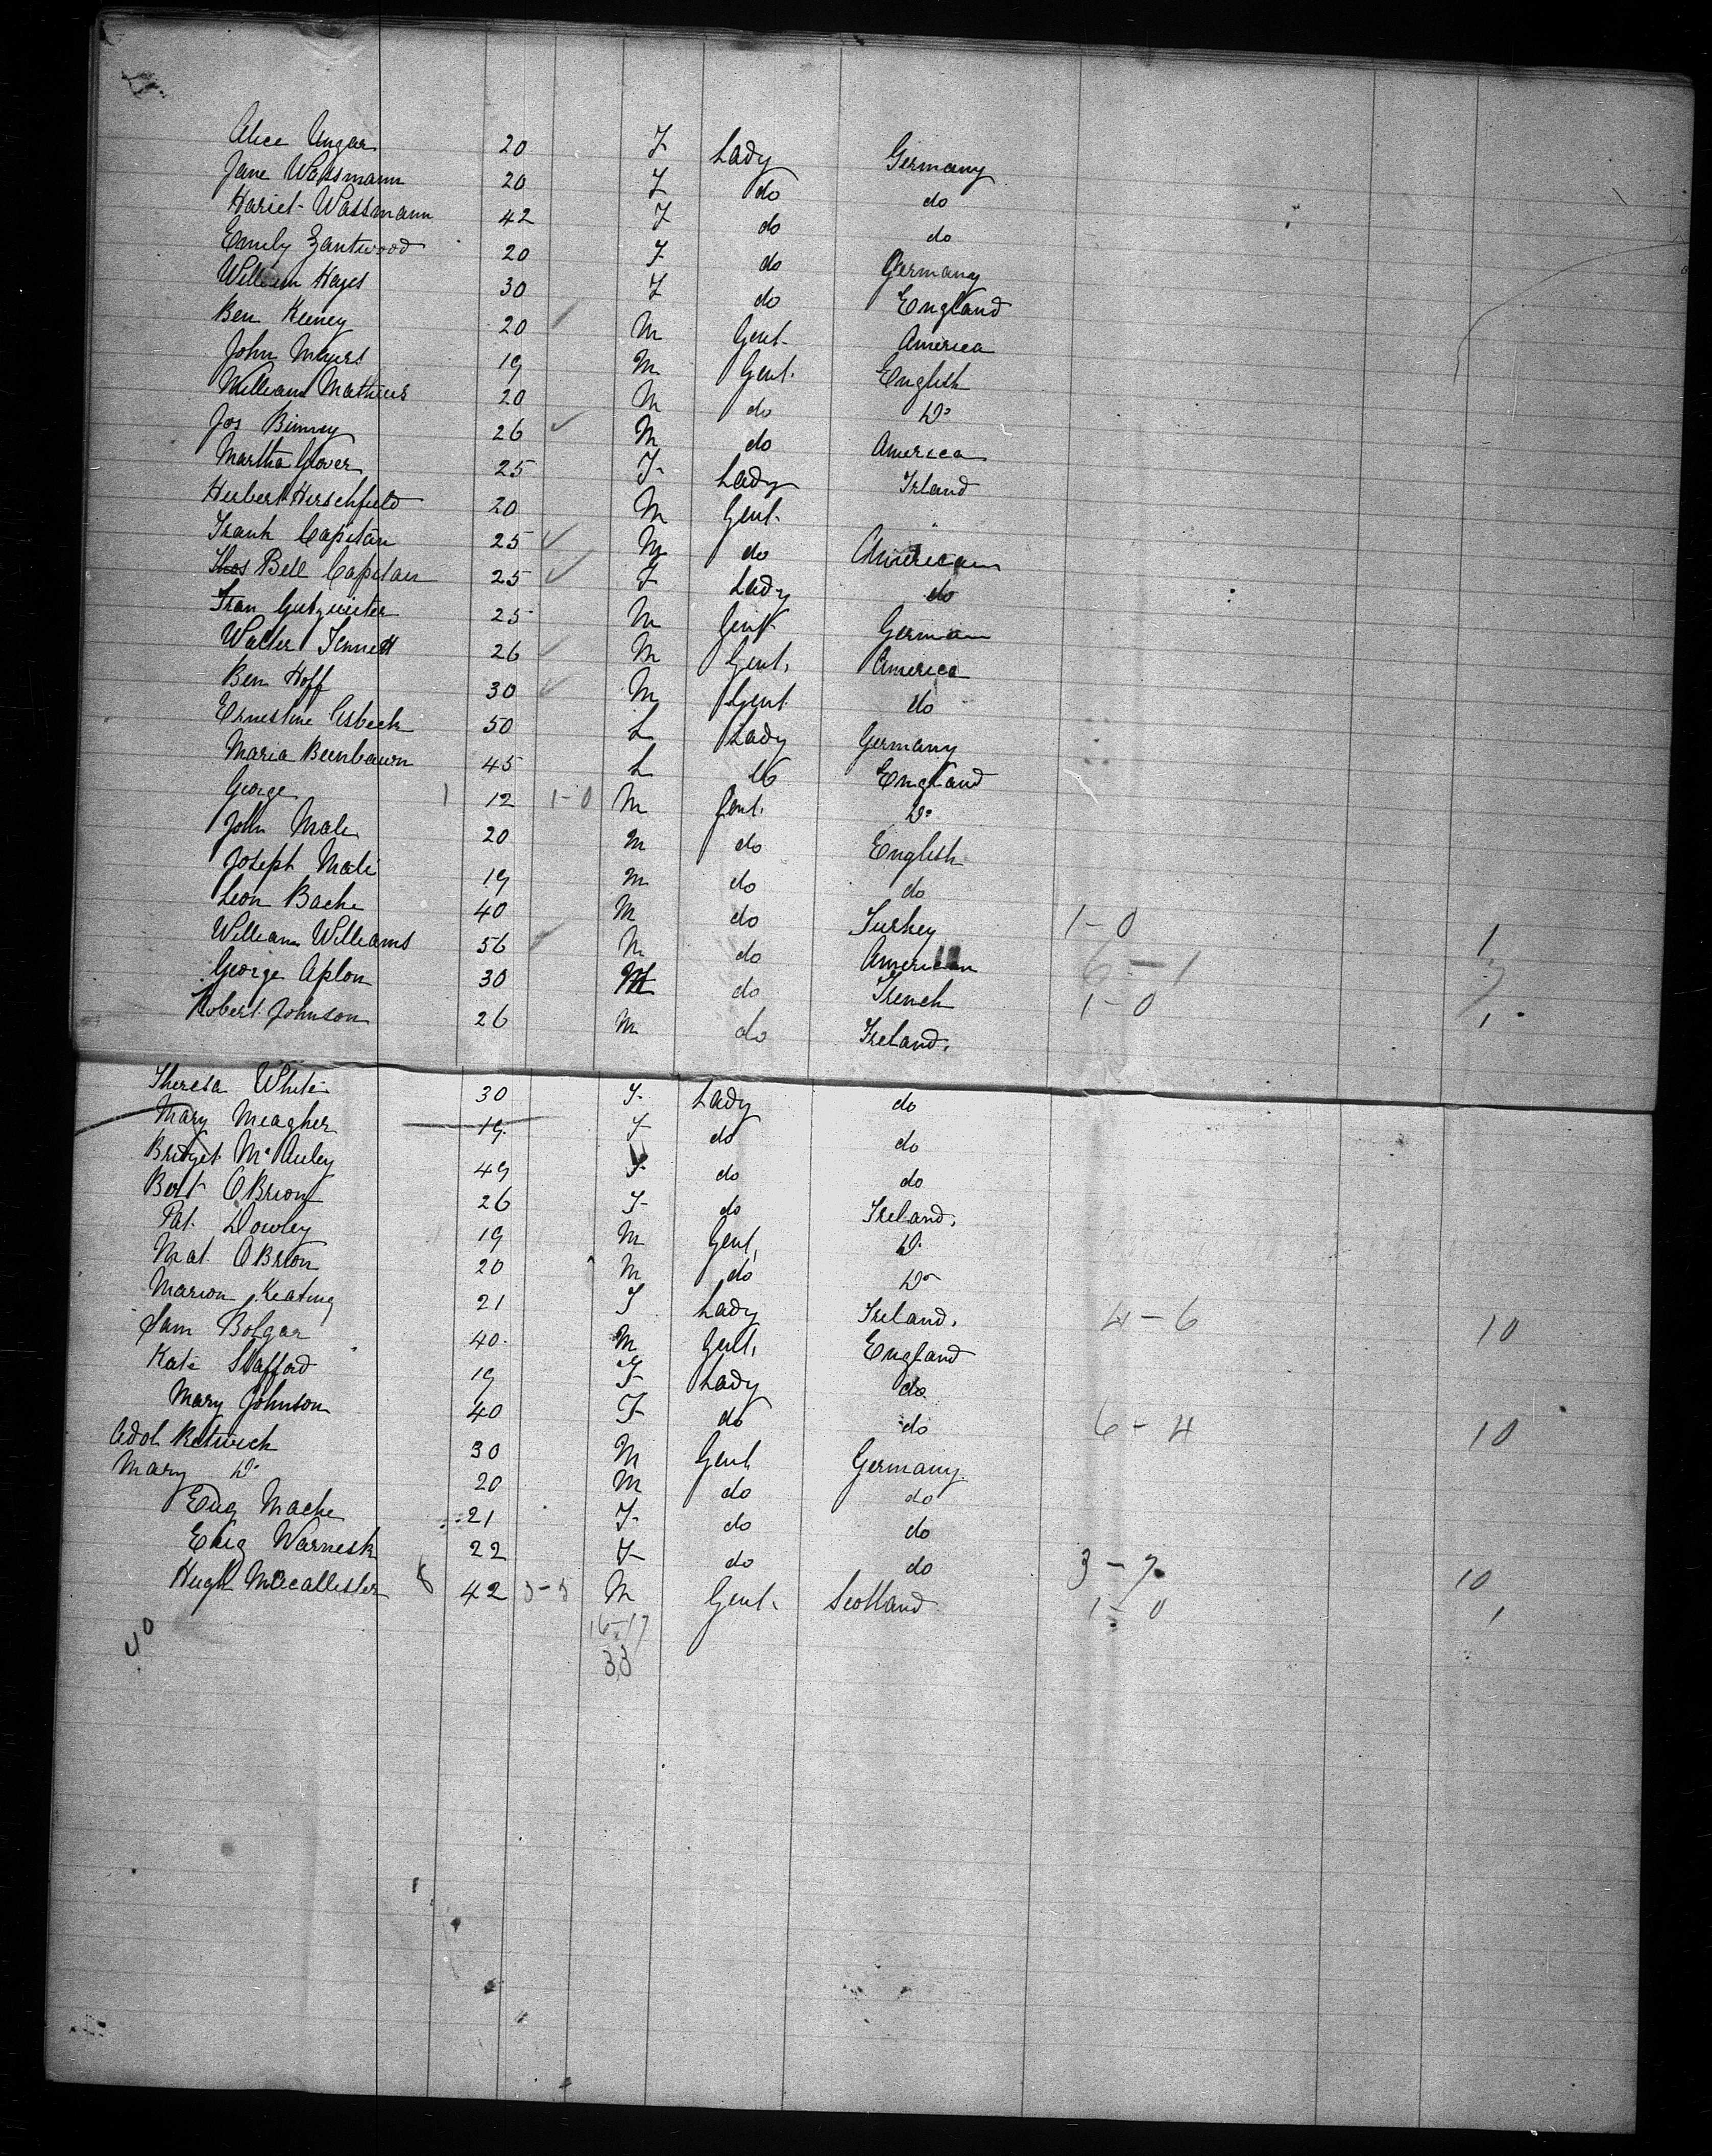 Alice Ungar 20 F Lady Germany
Jane Wassmann 20 F do do
Hariet Wassmann 42 F do do
Emily Zantwood 20 F do Germany
William Hayes 30 F do England
Ben Keeney 20 ✓ M Gent. America
John Meyers 19 M Gent. English
William Mathews 20 M do Do
Jos Binney 26 ✓ M do America
Martha Glover 25 F Lady Irland
Herbert Herschfield 20 M Gent.
Frank Capitan 25 ✓ M do American
Bell Capitan 25 ✓ F Lady do
Fran Gutzwiter 25 M Gent German
Walter Fennett 26 ✓ M Gent. America
Ben Hoff 30 ✓ M Gent do
Ernestine Asbeck 50 L Lady Germany
Maria Beenbaum 45 L do England
George 1 12 1-0 M Gent. Do
John Male 20 M do English
Joseph Male 19 M do do
Leon Bache 40 M do Turkey 1-0 1
William Williams 56 ✓ M do American 6-1 7
George Aplon 30 M do French 1-0 1
Robert Johnson 26 M do Ireland.
Theresa White 30 F Lady do
Mary Meagher 19 F do do
Bridget McAuley 49 F do do
Bert OBrion 26 F do Ireland.
Pat. Dowley 19 M Gent, Do
Mat. OBrion 20 M do Do
Marion Keating 21 F Lady Ireland. 4-6 10
Sam Bolgar 40. M Gent, England
Kate Stafford 19 F Lady do
Mary Johnson 40 F do do 6-4 10
Adol Retwick 30 M Gent Germany
Mary Do 20 M do do
Eug Mache 21 F do do
Eug Warnesk 22 F do do 3-7 10
Hugh McCallister 8 42 3-5 M Gent. Scotland 1-0 1
40 16-17
33